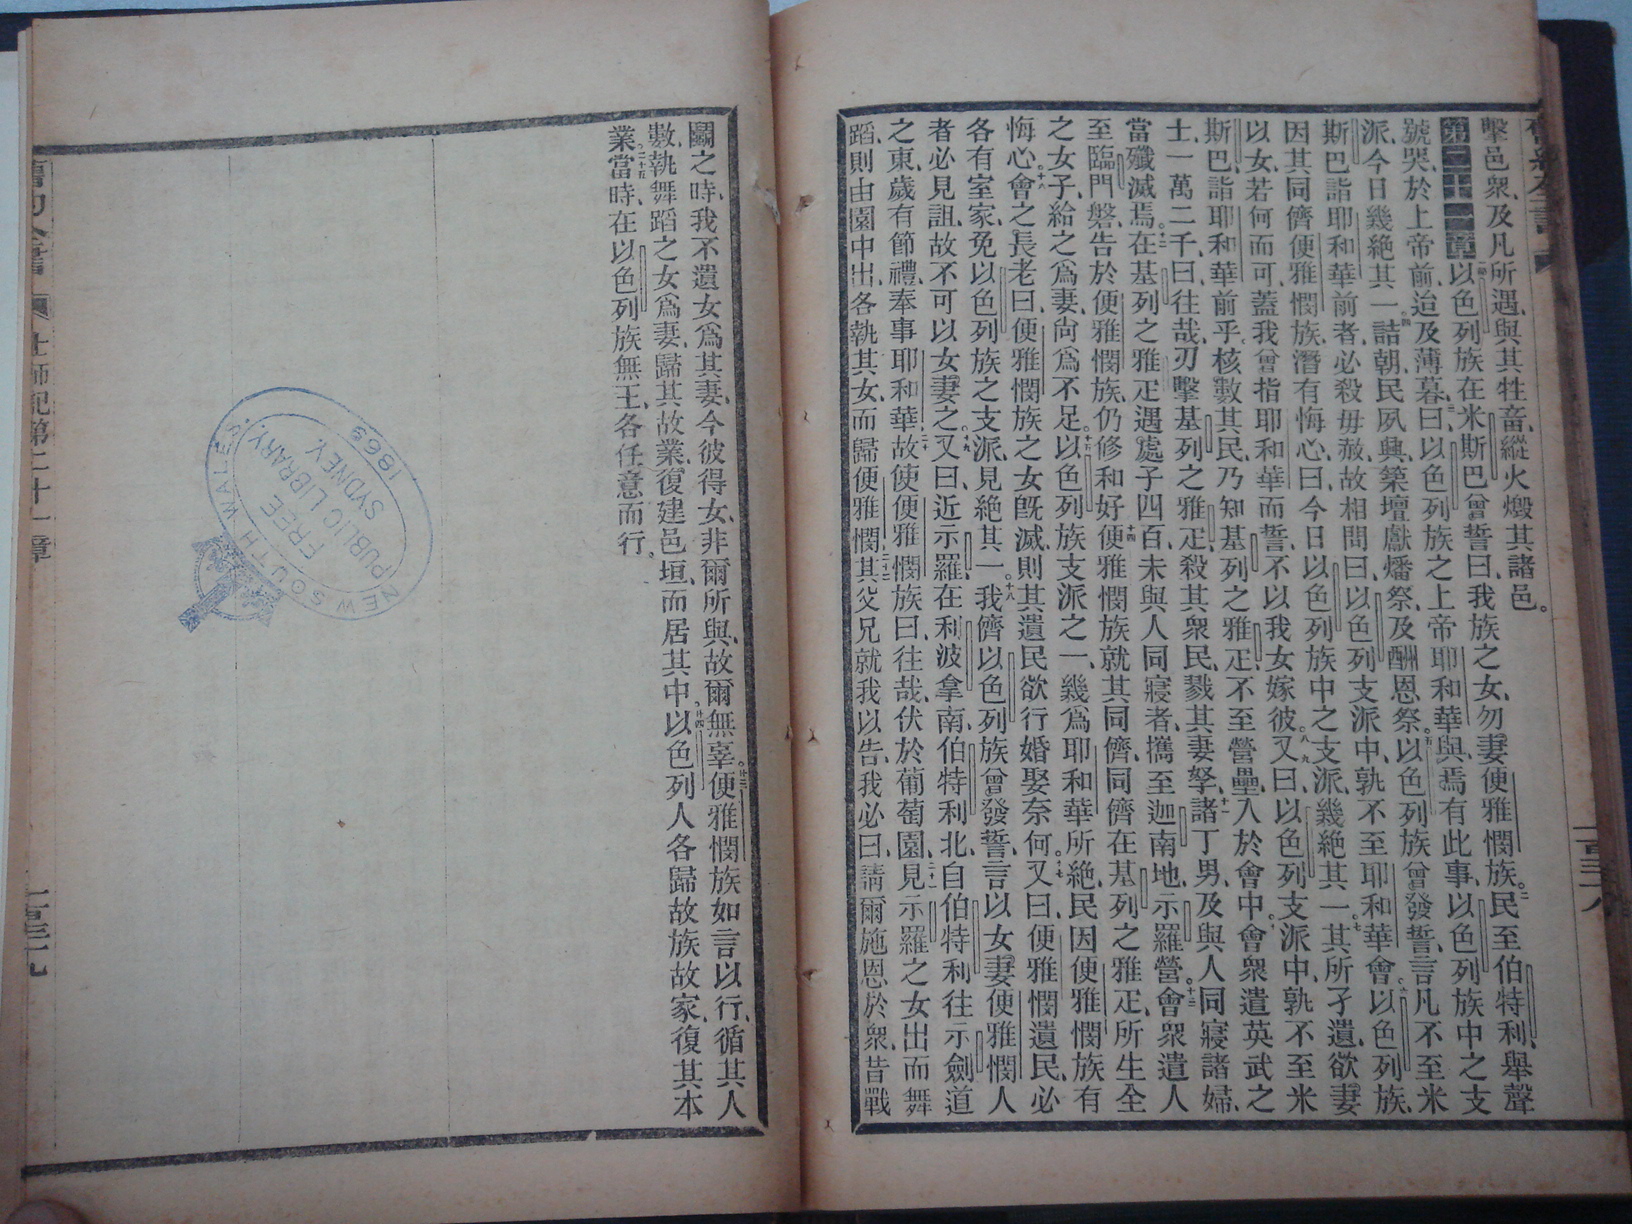 擊邑眾、及凡所遇、與其牲畜、縱火燬其諸邑。
第二十一章以色列族在米斯巴曾誓曰、我族之女、勿妻便雅憫族。二民至伯特利、舉聲
號哭、於上帝前、迨及薄暮、三曰、以色列族之上帝耶和華與、焉有此事、以色列族中之支
派、今日幾絕其一。四詰朝、民夙興、築壇獻燔祭、及酬恩祭。五以色列族曾發誓、言凡不至米
斯巴詣耶和華前者、必殺毋赦、故相問曰、以色列支派中、孰不至耶和華會。六以色列族、
因其同儕便雅憫族、潛有悔心、曰、今日以色列族中之支派、幾絕其一。七其所孑遺、欲妻
以女、若何而可、蓋我曾指耶和華而誓、不以我女嫁彼。八九又曰、以色列支派中、孰不至米
斯巴、詣耶和華前乎、核數其民、乃知基列之雅疋、不至營壘、入於會中。十會眾遣英武之
士一萬二千、曰、往哉、刃擊基列之雅疋、殺其眾民、戮其妻孥、十一諸丁男、及與人同寢諸婦、
當殲滅焉。十二在基列之雅疋、遇處子四百、未與人同寢者、攜至迦南地、示羅營。十三會眾遣人
至臨門磐、告於便雅憫族、仍修和好、十四便雅憫族就其同儕、同儕在基列之雅疋、所生全
之女子、給之為妻、尚為不足。十五以色列族支派之一、幾為耶和華所絕、民因便雅憫族有
悔心。十六會之長老曰、便雅憫族之女既滅、則其遺民欲行婚娶奈何。十七又曰、便雅憫遺民、必
各有室家、免以色列族之支派、見絕其一。十八我儕以色列族曾發誓、言以女妻便雅憫人
者、必見詛、故不可以女妻之。十九又曰、近示羅、在利波拿南、伯特利北、自伯特利往示劍道
之東、歲有節禮、奉事耶和華、二十故使便雅憫族曰、往哉、伏於葡萄園、二十一見示羅之女出而舞
蹈、則由園中出、各執其女、而歸便雅憫、二十二其父兄就我以告、我必曰、請爾施恩於眾、昔戰
鬭之時、我不遺女為其妻、今彼得女、非爾所與、故爾無辜。廿三便雅憫族如言以行、循其人
數、執舞蹈之女為妻、歸其故業、復建邑垣、而居其中。廿四以色列人各歸故族故家、復其本
業。二十五當時、在以色列族無王、各任意而行。
士師記第二十一章
一百三十九
NEW SOUTH WALES.
FREE
PUBLIC LIBRARY,
SYDNEY.
1869